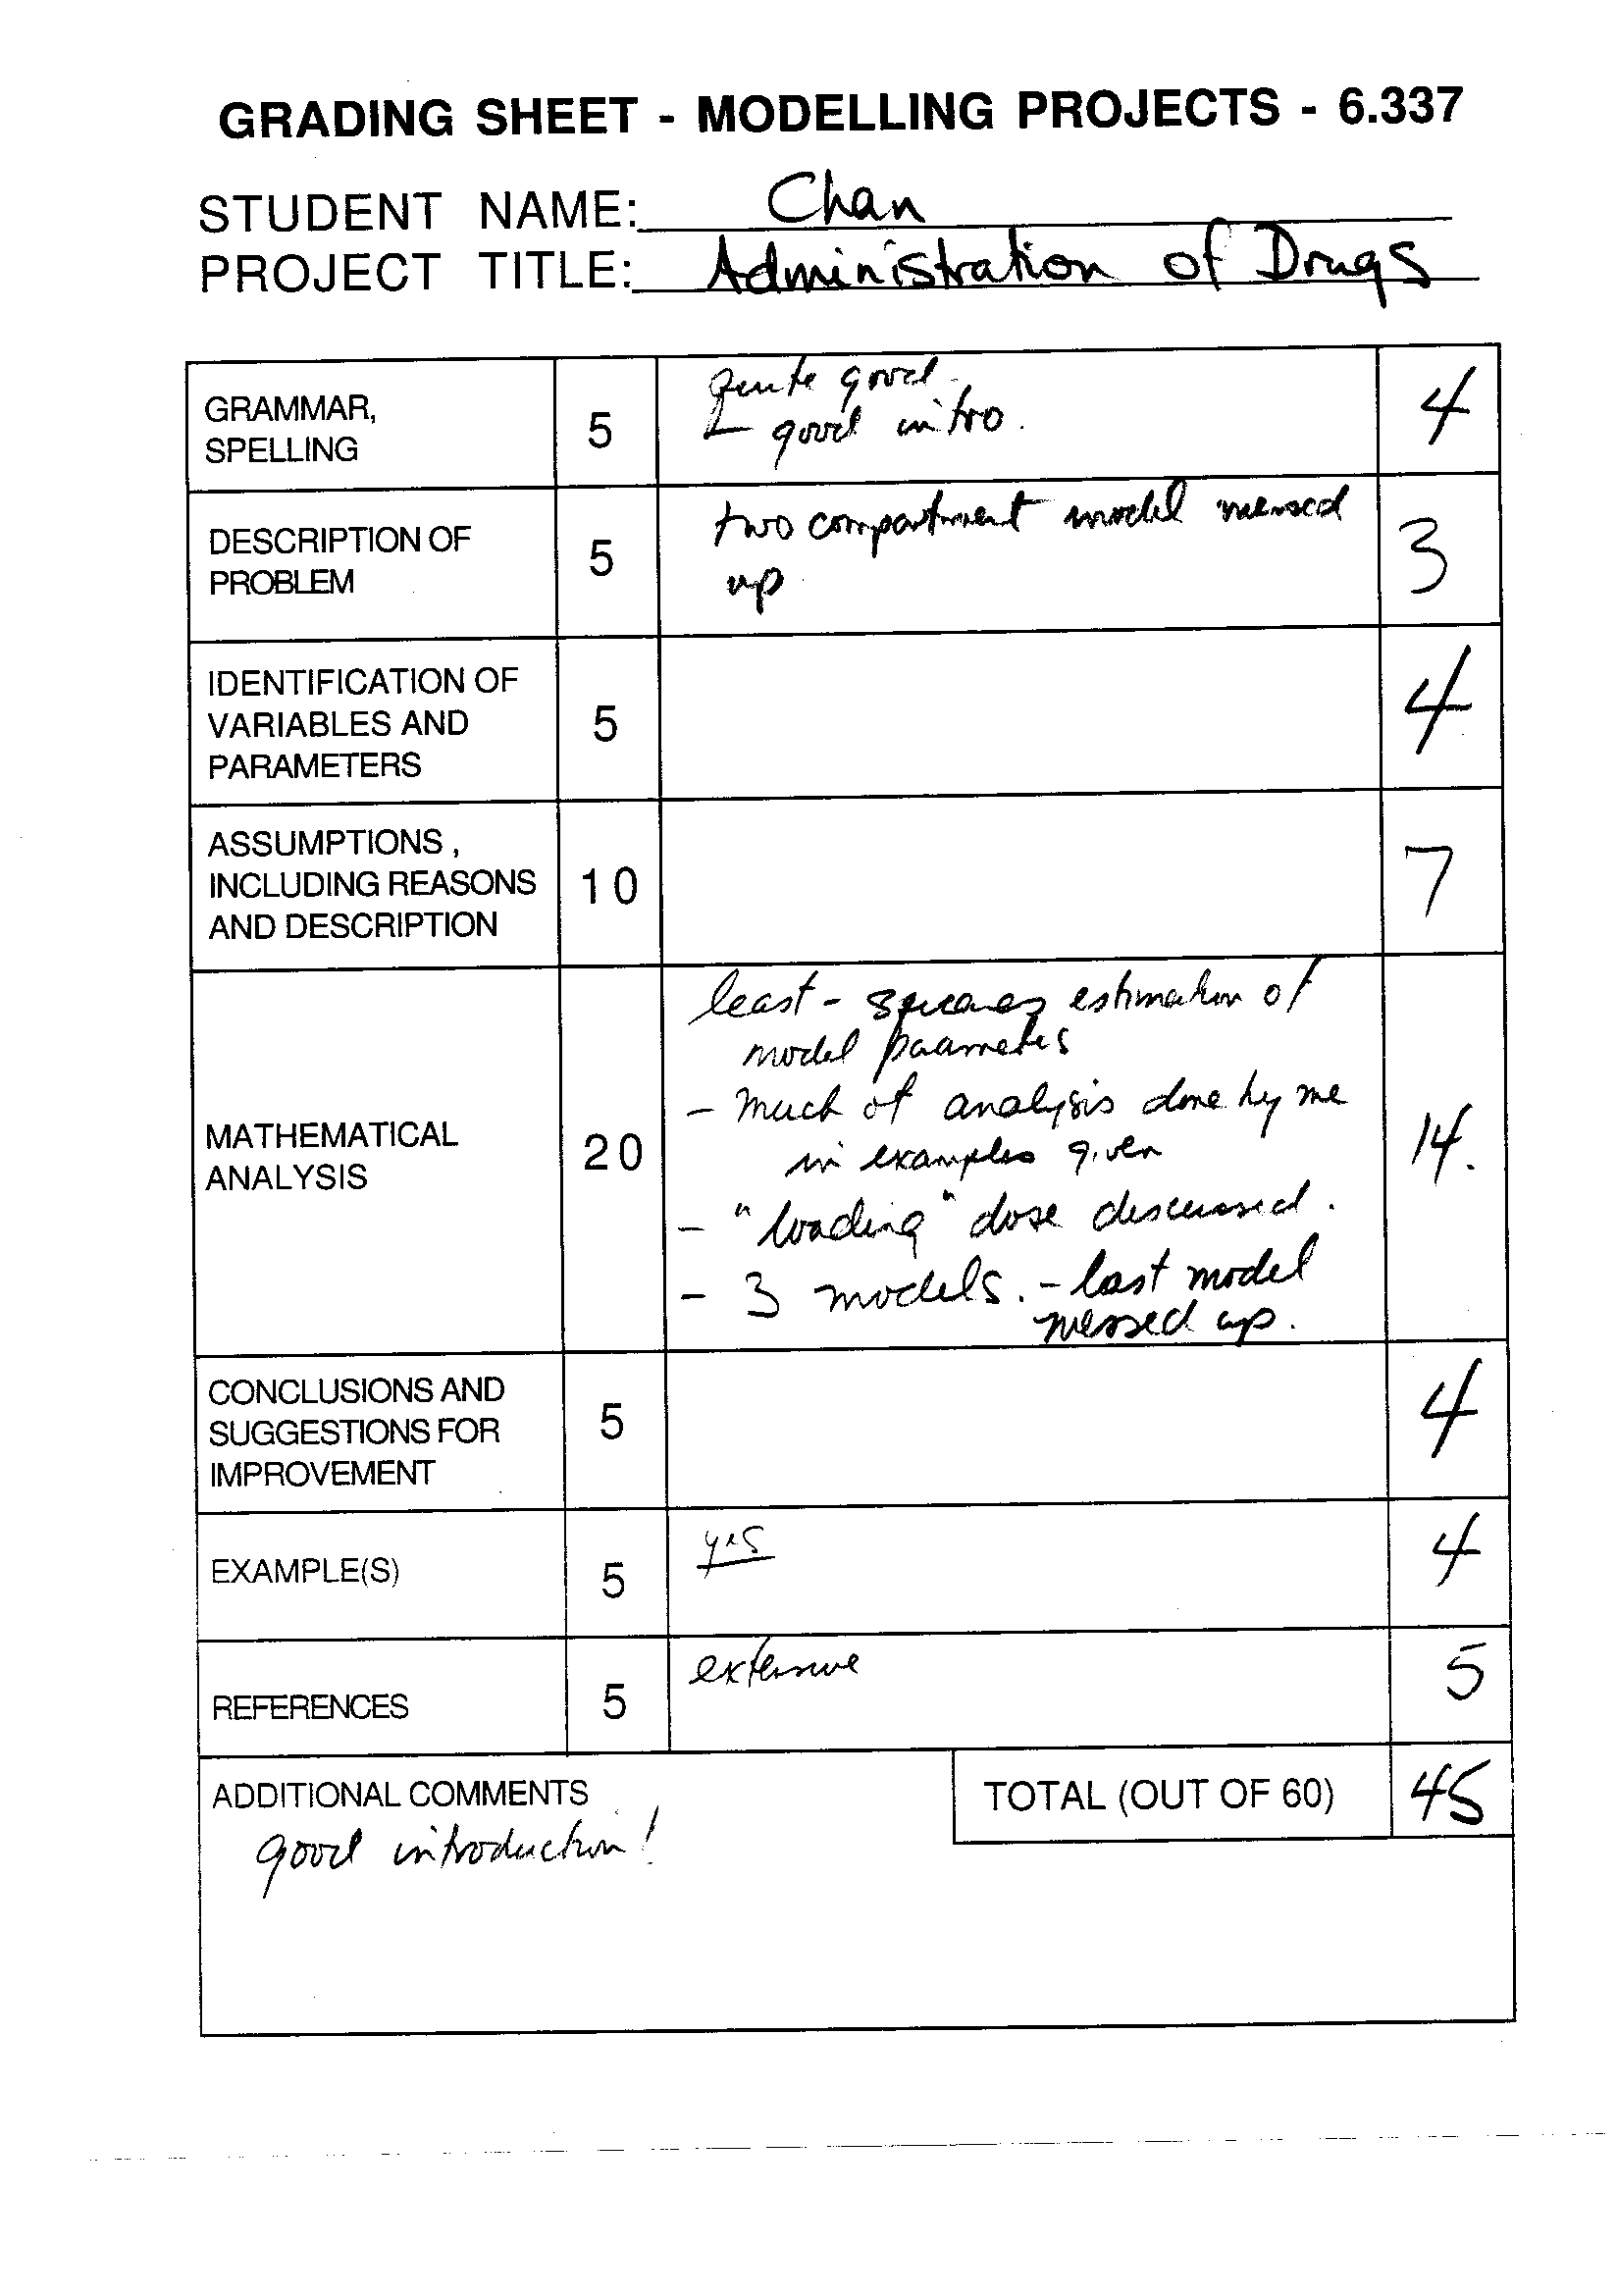 GRADING SHEET - MODELLING PROJECTS - 6.337
STUDENT NAME: Chan
PROJECT TITLE: Administration of Drugs
GRAMMAR,
SPELLING
5
Quite good.
good intro.
4
DESCRIPTION OF
PROBLEM
5
two compartment model messed
up
3
IDENTIFICATION OF
VARIABLES AND
PARAMETERS
5
4
ASSUMPTIONS ,
INCLUDING REASONS
AND DESCRIPTION
10
7
MATHEMATICAL
ANALYSIS
20
least - squares estimation of
model paametes
- much of analysis done by me
in examples given
- "loading" dose discussed.
- 3 models. - last model
messed up.
14.
CONCLUSIONS AND
SUGGESTIONS FOR
IMPROVEMENT
5
4
EXAMPLE(S)
5
yes
4
REFERENCES
5
extensive
5
ADDITIONAL COMMENTS
good introduction!
TOTAL (OUT OF 60)
45